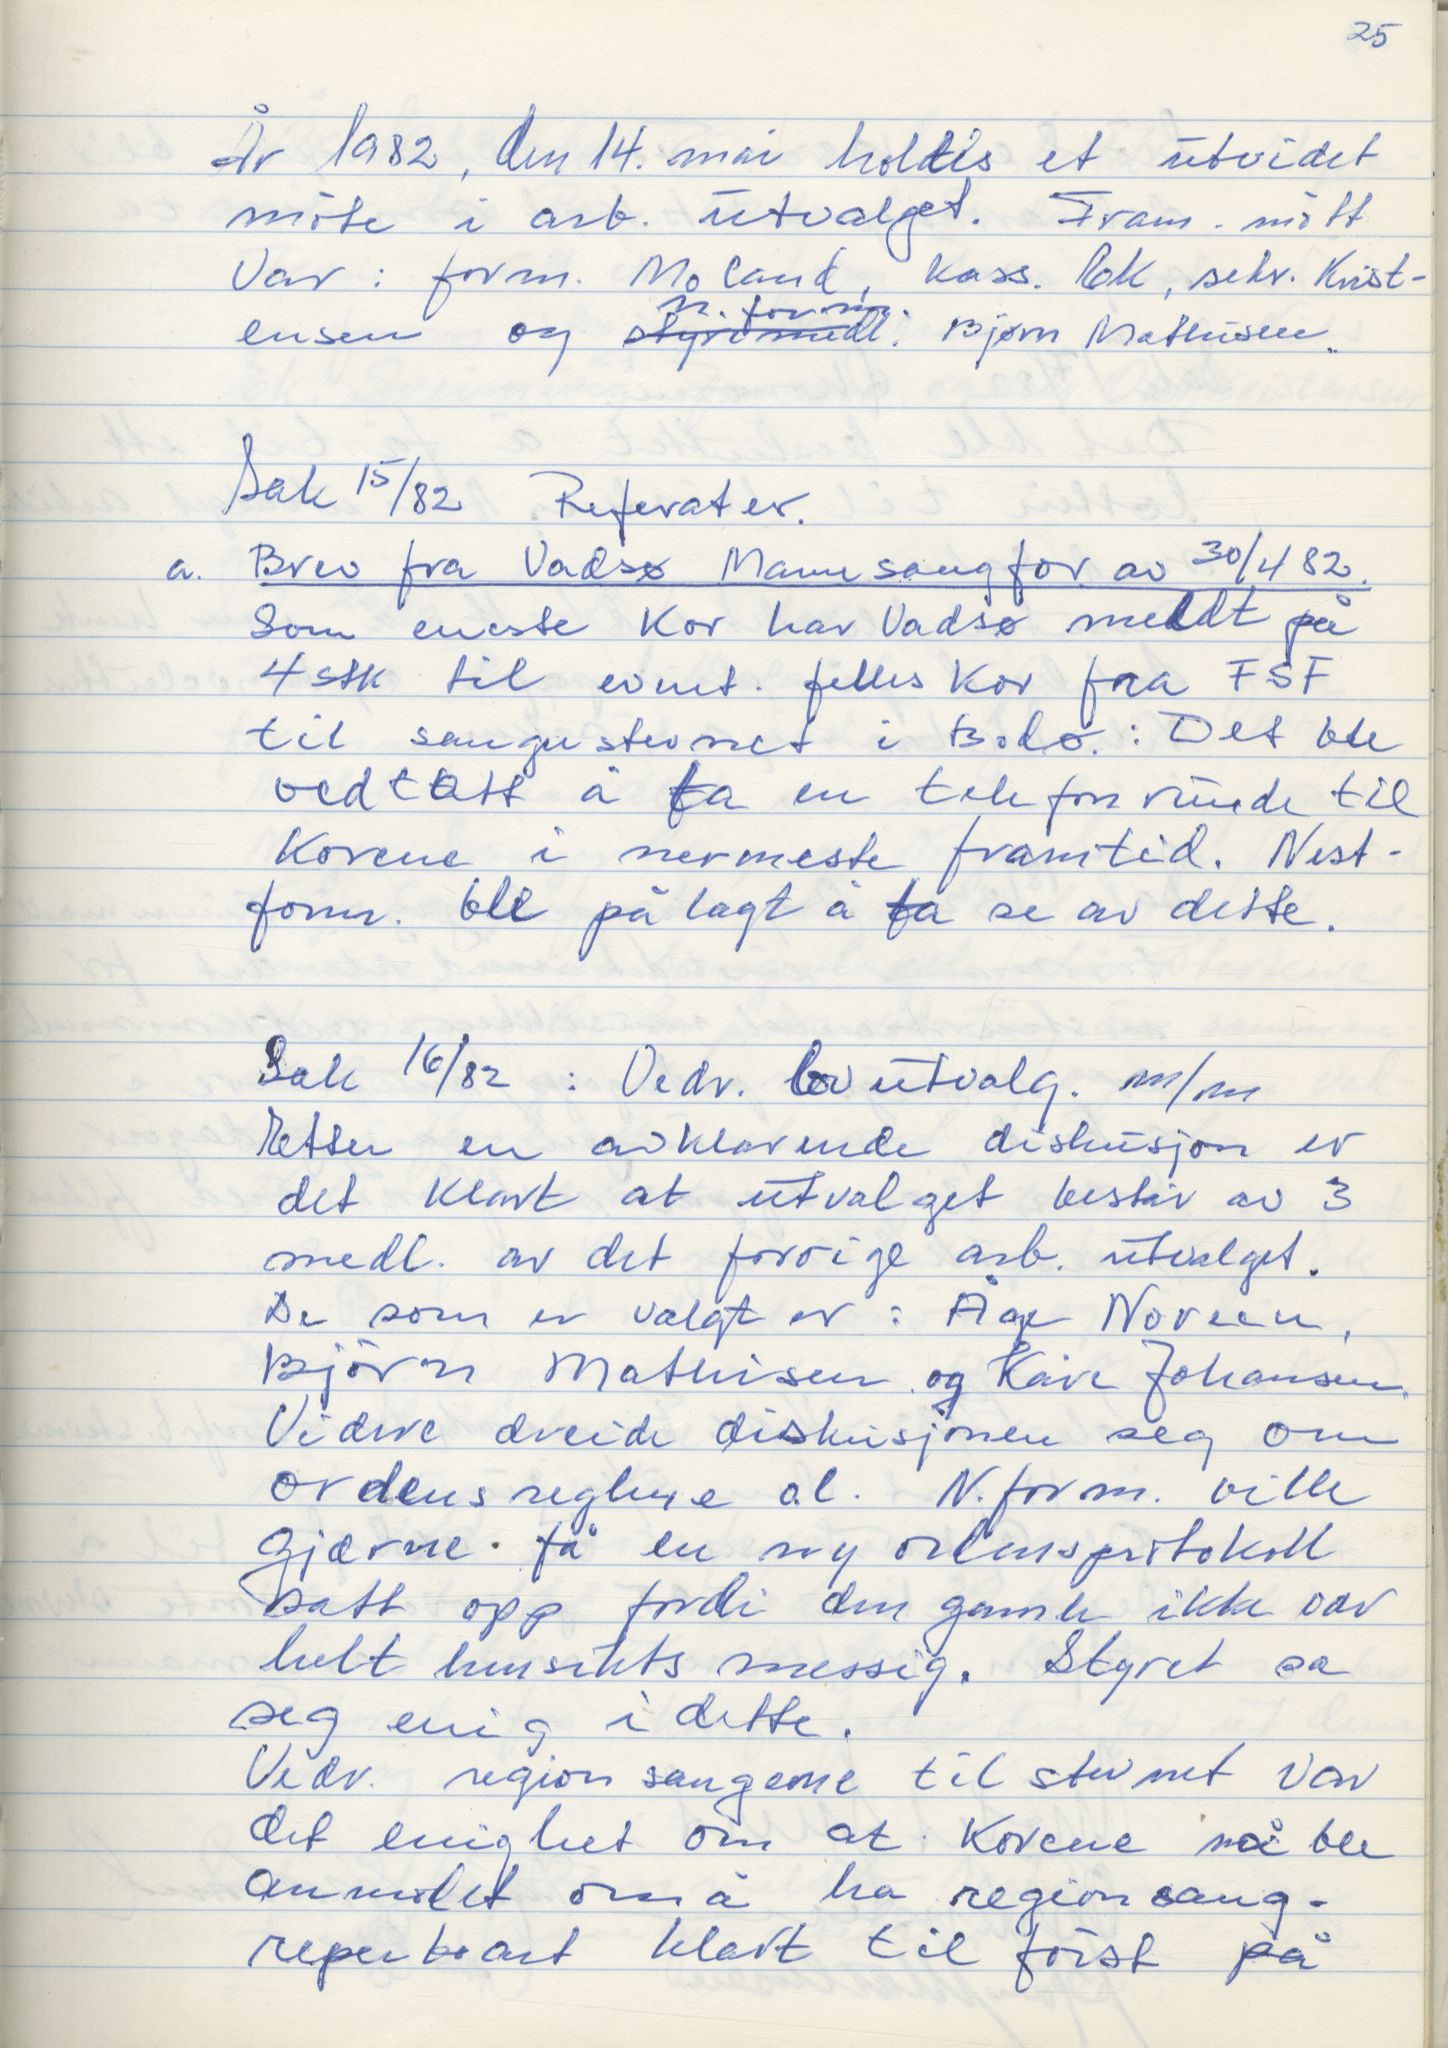 25
År 1982, den 14. mai holdtis et utvidet
möte i arb. utvalget. Fram. mött
Var : form. Moland, kass. Rok, sekr. Krist-
n. form.
ensen og styremedl. Bjørn Mathisen.
Sak 15/82 Referater.
a. Brev fra Vadsø Mannsangfor. av 30/4 82.
Som eneste Kor har Vadsø meldt på
4 stk til evnt. felles Kor fra FSF
til sangerstevnet i Bodø. : Det ble
vedtatt å ta en telefonrunde til
Korene i nermeste framtid. Nest-
form. ble pålagt å ta se av dette.
Sak 16/82 : Vedv. lovutvalg. m/m
Etter en avklarende diskusjon er
det klart at utvalget består av 3
medl. av det forrige arb. utvalget.
De som er valgt er : Åge Noreen,
Björn Mathisen og Kåre Johansen.
Videre dreide diskusjonen seg om
ordensreglene o.l. N. form. ville
gjærne få en ny ordensprotokoll
satt opp fordi den gamle ikke var
helt hensiktsmessig. Styret sa
seg enig i dette.
Vedv. regionsangerne til stevnet var
det enighet om at Korene må ble
anmodet om å ha regionsang-
repertoart klart til först på